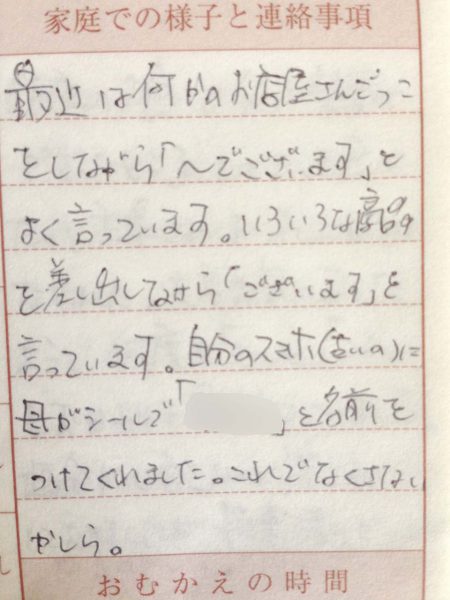 家庭での様子と連絡事項
最近は何かのお店屋さんごっこ
をしながら「～でございます」と
よく言っています。いろいろな商品
を差し出しながら「ございます」と
言っています。自分のスマホ(古いの)に
母がシールで「 」と名前を
つけてくれました。これでなくさない
かしら。
おむかえの時間